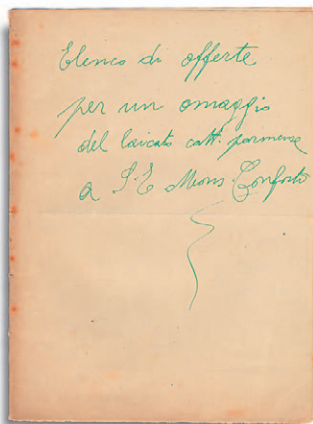 Elenco di offerte
per un omaggio
del laicato catt. parmense
a S. E Mons Conforti